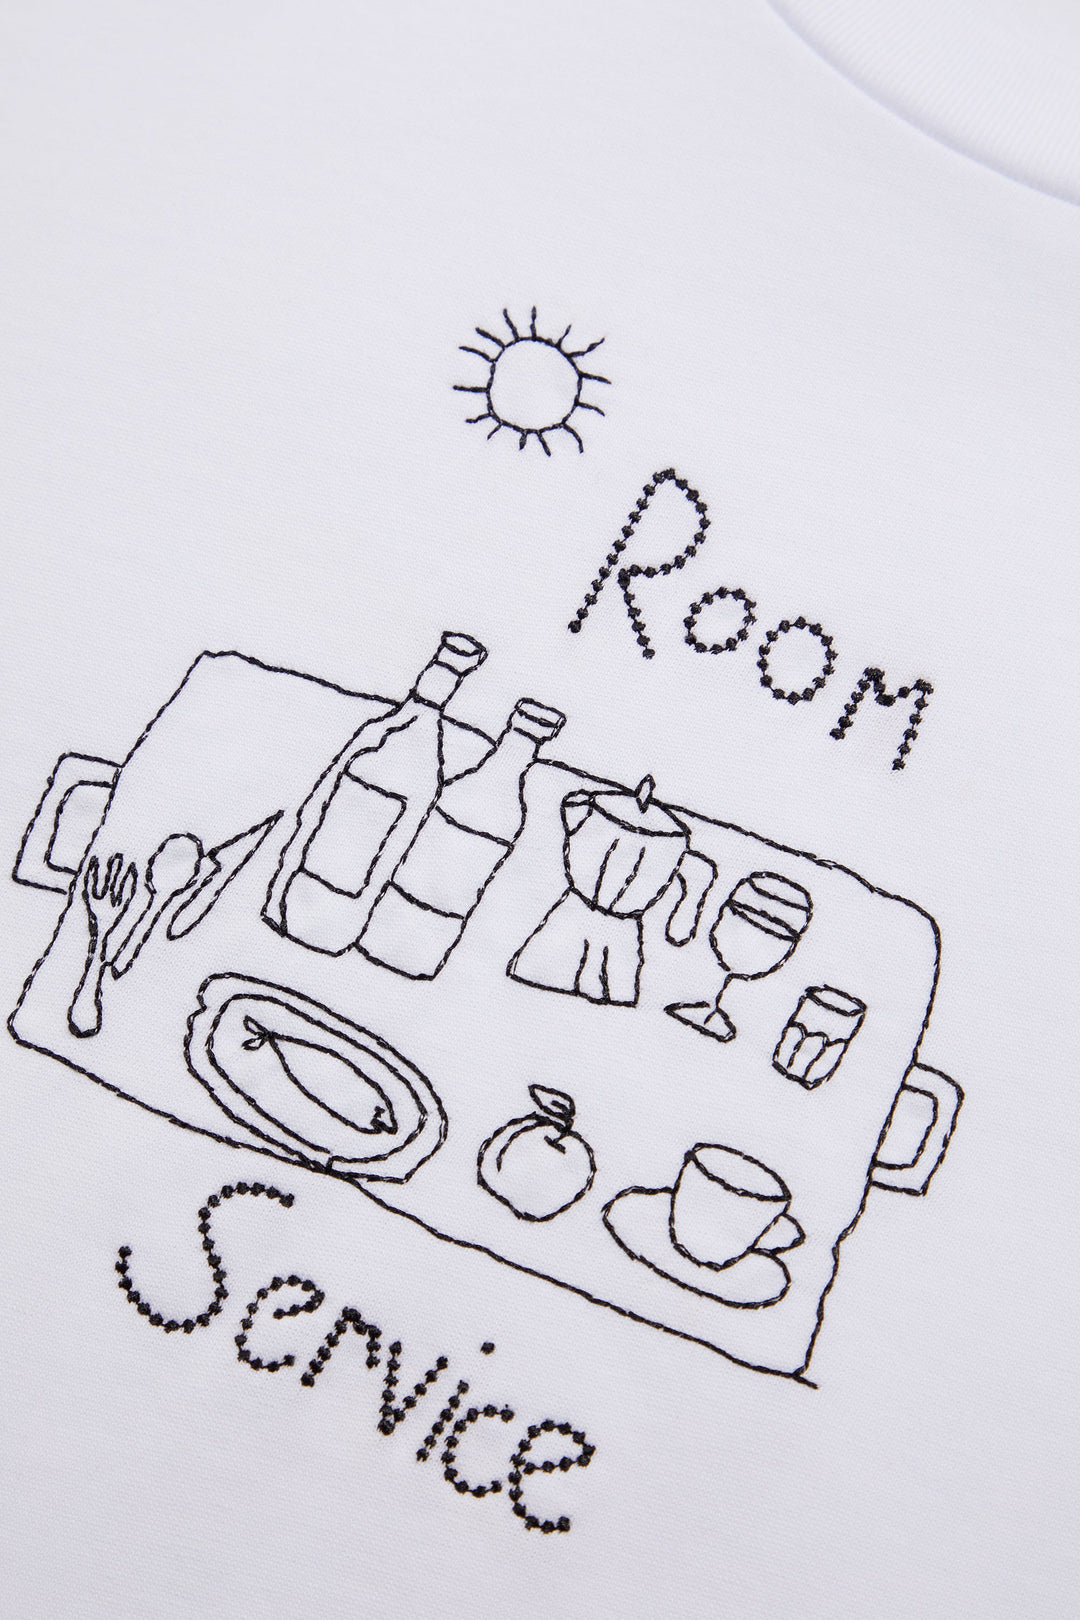 Room
Service